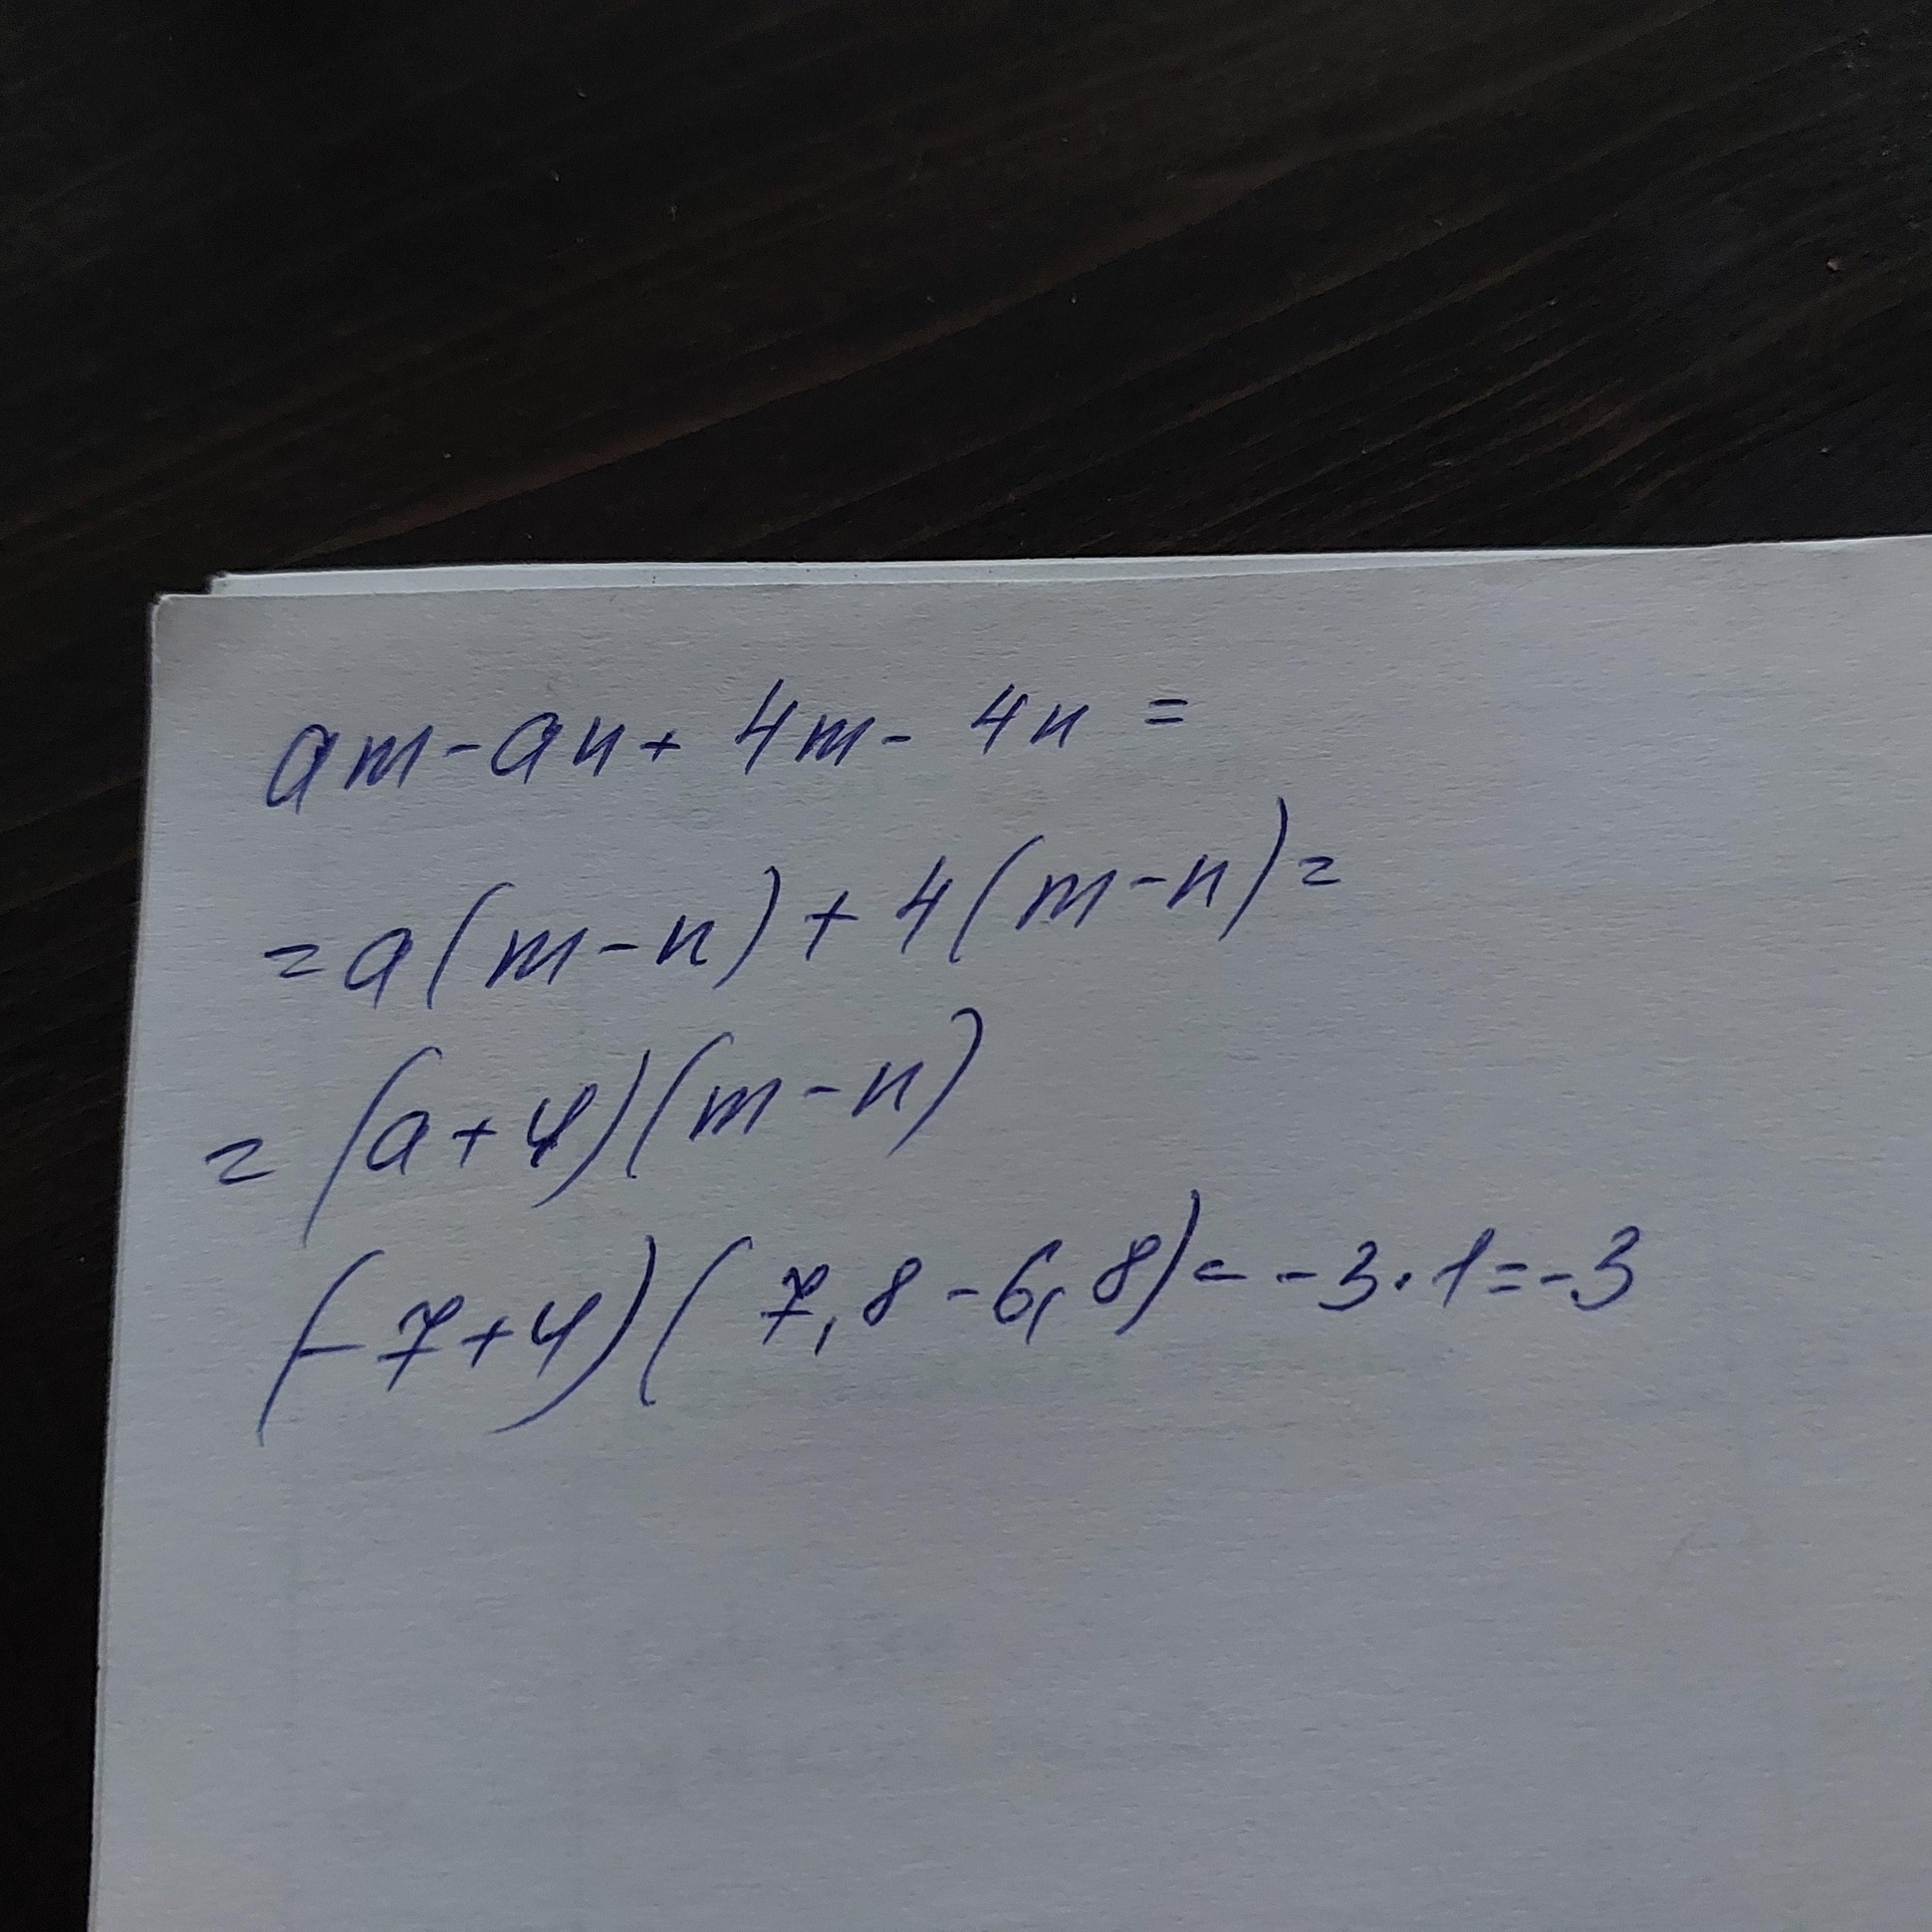 am-an+4m-4n=
=a(m-n)+4(m-n)=
=(a+4)(m-n)
(-7+4)(7,8-6,8)=-3·1=-3